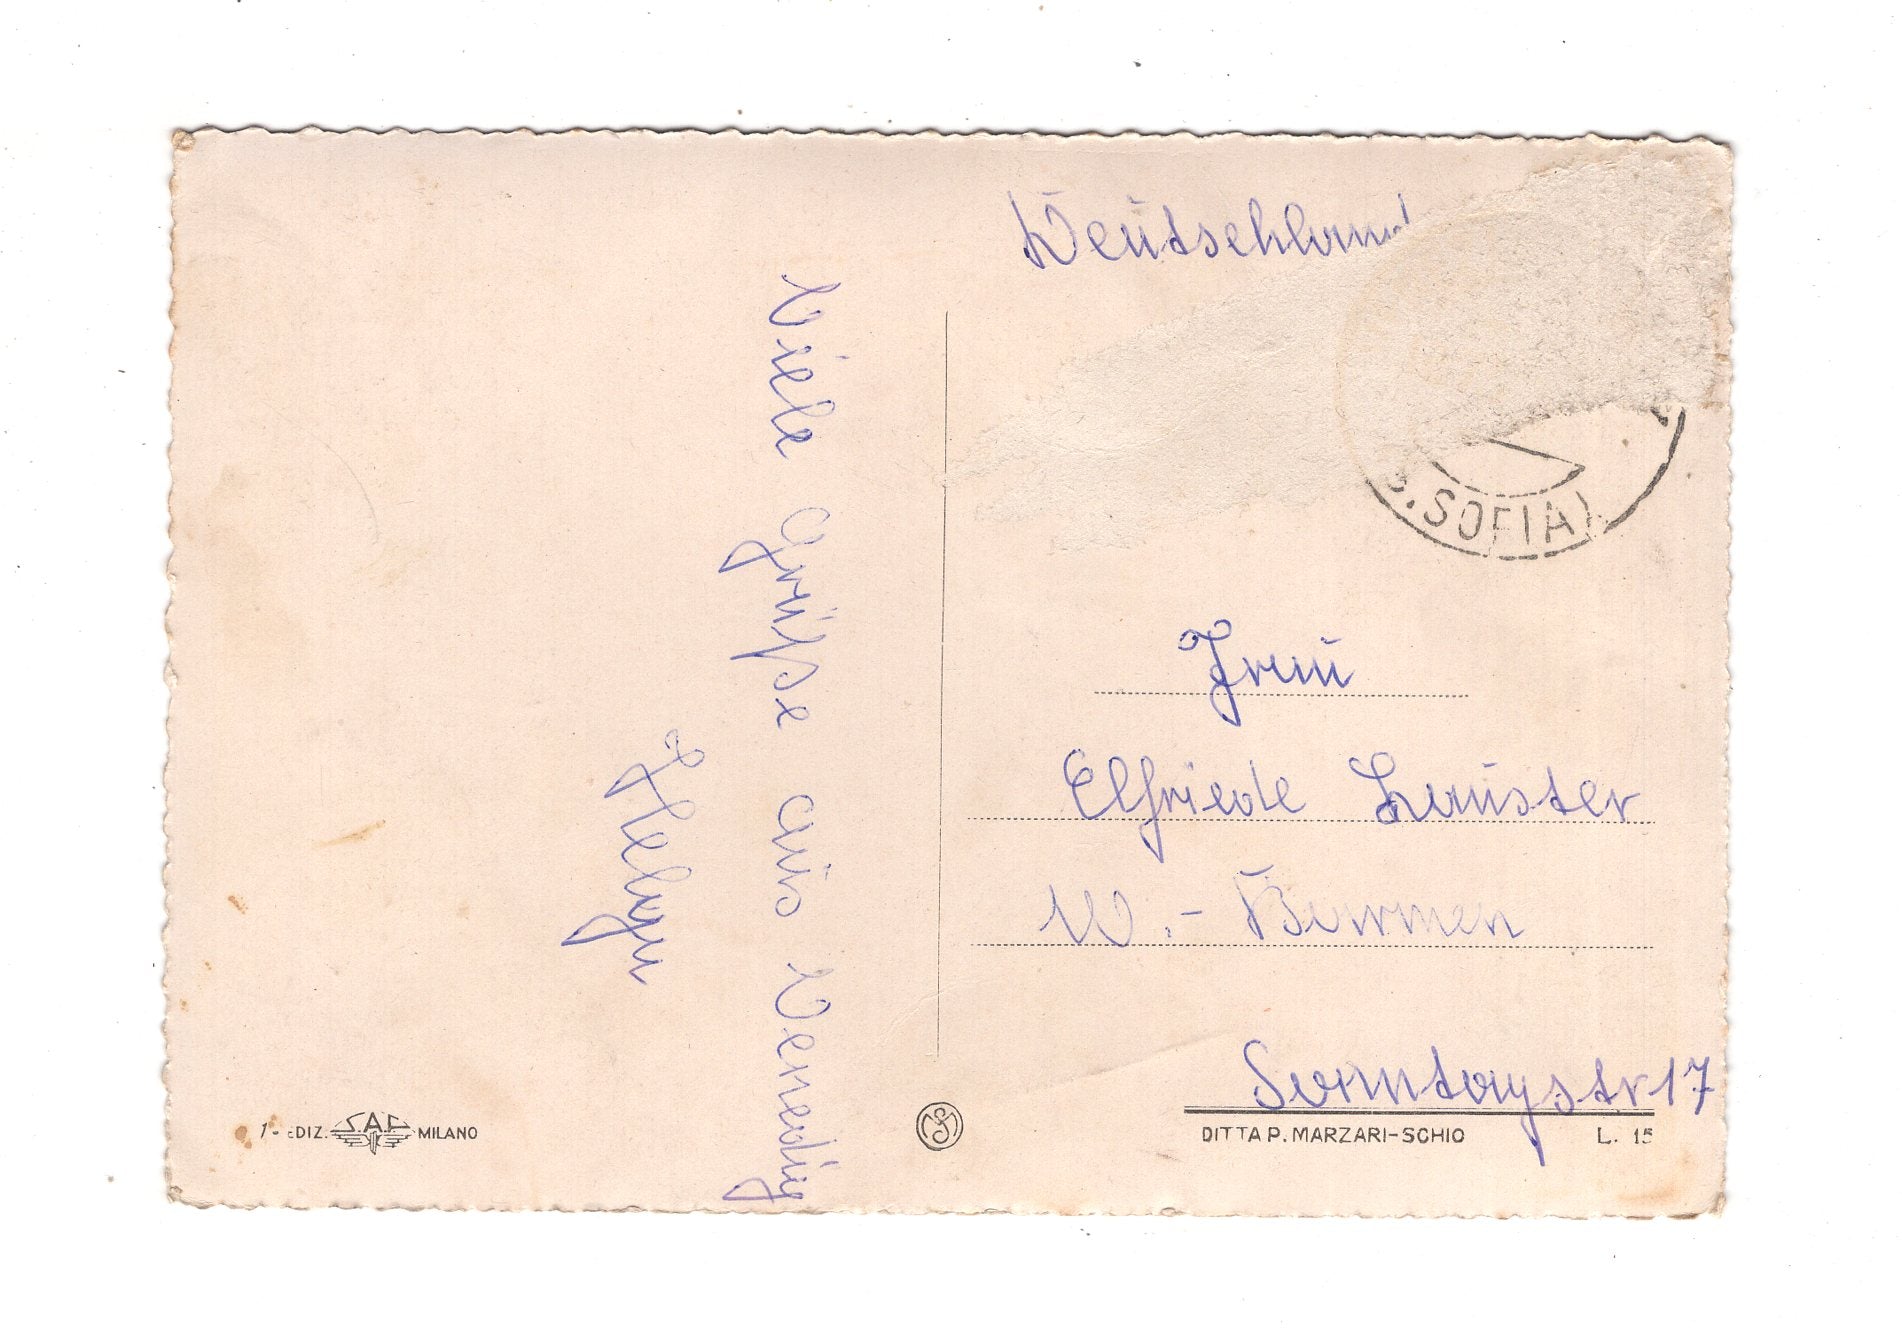 Viele Grüße aus Venedig
Helga
Deutschland
S. SOFIA)
Frau
Elfriede Lauster
W.-Barmen
Sonntagstr 17
1 - EDIZ. S.A.F. MILANO
DITTA P. MARZARI-SCHIO
L. 15